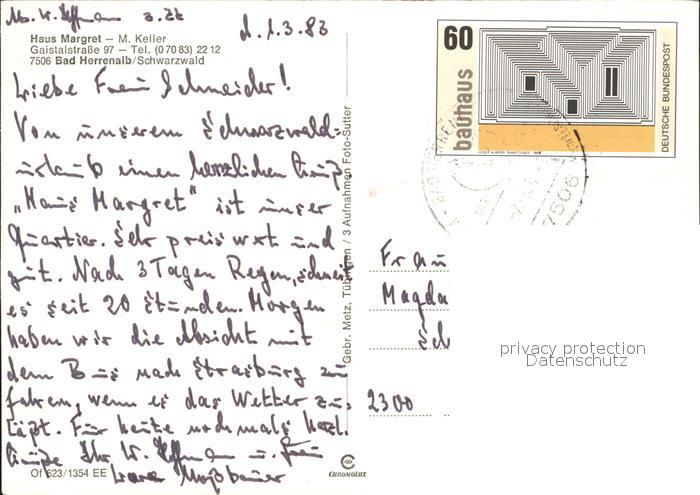 Abs. W. Hoffmann z. Zt.
d. 1.3.83
Haus Margret – M. Keller
Gaistalstraße 97 – Tel. (0 70 83) 22 12
7506 Bad Herrenalb/Schwarzwald
Liebe Frau Schneider!
Von unserem Schwarzwald-
urlaub einen herzlichen Gruß.
„Haus Margret" ist unser
Quartier. Sehr preiswert und
gut. Nach 3 Tagen Regen, schneit
es seit 20 Stunden. Morgen
haben wir die Absicht mit
dem Bus nach Straßburg zu
fahren, wenn es das Wetter zu-
läßt. Für heute nochmals herzl.
Grüße Ihr W. Hoffmann u. Frau
Moßbauer
Of 623/1354 EE
Gebr. Metz, Tübingen / 3 Aufnahmen Foto-Sutter
CHROMOLUX
60
bauhaus
DEUTSCHE BUNDESPOST
7506
Frau
Magda
Sch
2300
privacy protection
Datenschutz